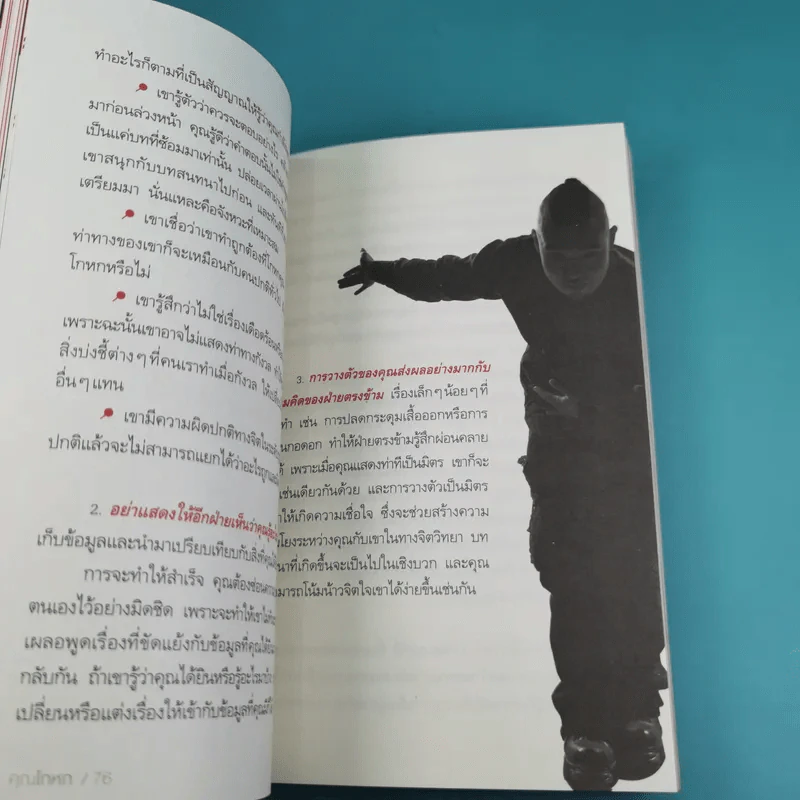 ทำอะไรก็ตามที่เป็นสัญญาณให้รู้ว่า
เขารู้ตัวว่าควรจะตอบอย่างไร
มาก่อนล่วงหน้า คุณรู้ดีว่าคำตอบนั้น
เป็นแค่บทที่ซ้อมมาเท่านั้น ปล่อยเวลา
เขาสนุกกับบทสนทนาไปก่อน และ
เตรียมมา นั่นแหละคือจังหวะที่เหมาะสม
เขาเชื่อว่าเขาทำถูกต้องที่โกหก
ท่าทางของเขาก็จะเหมือนกับคนปกติ
โกหกหรือไม่
เขารู้สึกว่าไม่ใช่เรื่องเดือดร้อน
เพราะฉะนั้นเขาอาจไม่แสดงท่าทางกังวล
สิ่งบ่งชี้ต่างๆ ที่คนเราทำเมื่อกังวล
อื่นๆ แทน
เขามีความผิดปกติทางจิต
ปกติแล้วจะไม่สามารถแยกได้ว่าอะไรถูก
2. อย่าแสดงให้อีกฝ่ายเห็นว่าคุณ
เก็บข้อมูลและนำมาเปรียบเทียบกับสิ่งที่
การจะทำให้สำเร็จ คุณต้องซ่อน
ตนเองไว้อย่างมิดชิด เพราะจะทำให้เขา
เผลอพูดเรื่องที่ขัดแย้งกับข้อมูลที่คุณ
กลับกัน ถ้าเขารู้ว่าคุณได้ยินหรือรู้อะไรมา
เปลี่ยนหรือแต่งเรื่องให้เข้ากับข้อมูลที่คุณ
คุณโกหก / 76
3. การวางตัวของคุณส่งผลอย่างมากกับ
มคิดของฝ่ายตรงข้าม เรื่องเล็กๆ น้อยๆ ที่
ทำ เช่น การปลดกระดุมเสื้อออกหรือการ
นกอดอก ทำให้ฝ่ายตรงข้ามรู้สึกผ่อนคลาย
ด้ เพราะเมื่อคุณแสดงท่าทีเป็นมิตร เขาก็จะ
เช่นเดียวกันด้วย และการวางตัวเป็นมิตร
ำให้เกิดความเชื่อใจ ซึ่งจะช่วยสร้างความ
โยงระหว่างคุณกับเขาในทางจิตวิทยา บท
นาที่เกิดขึ้นจะเป็นไปในเชิงบวก และคุณ
มารถโน้มน้าวจิตใจเขาได้ง่ายขึ้นเช่นกัน